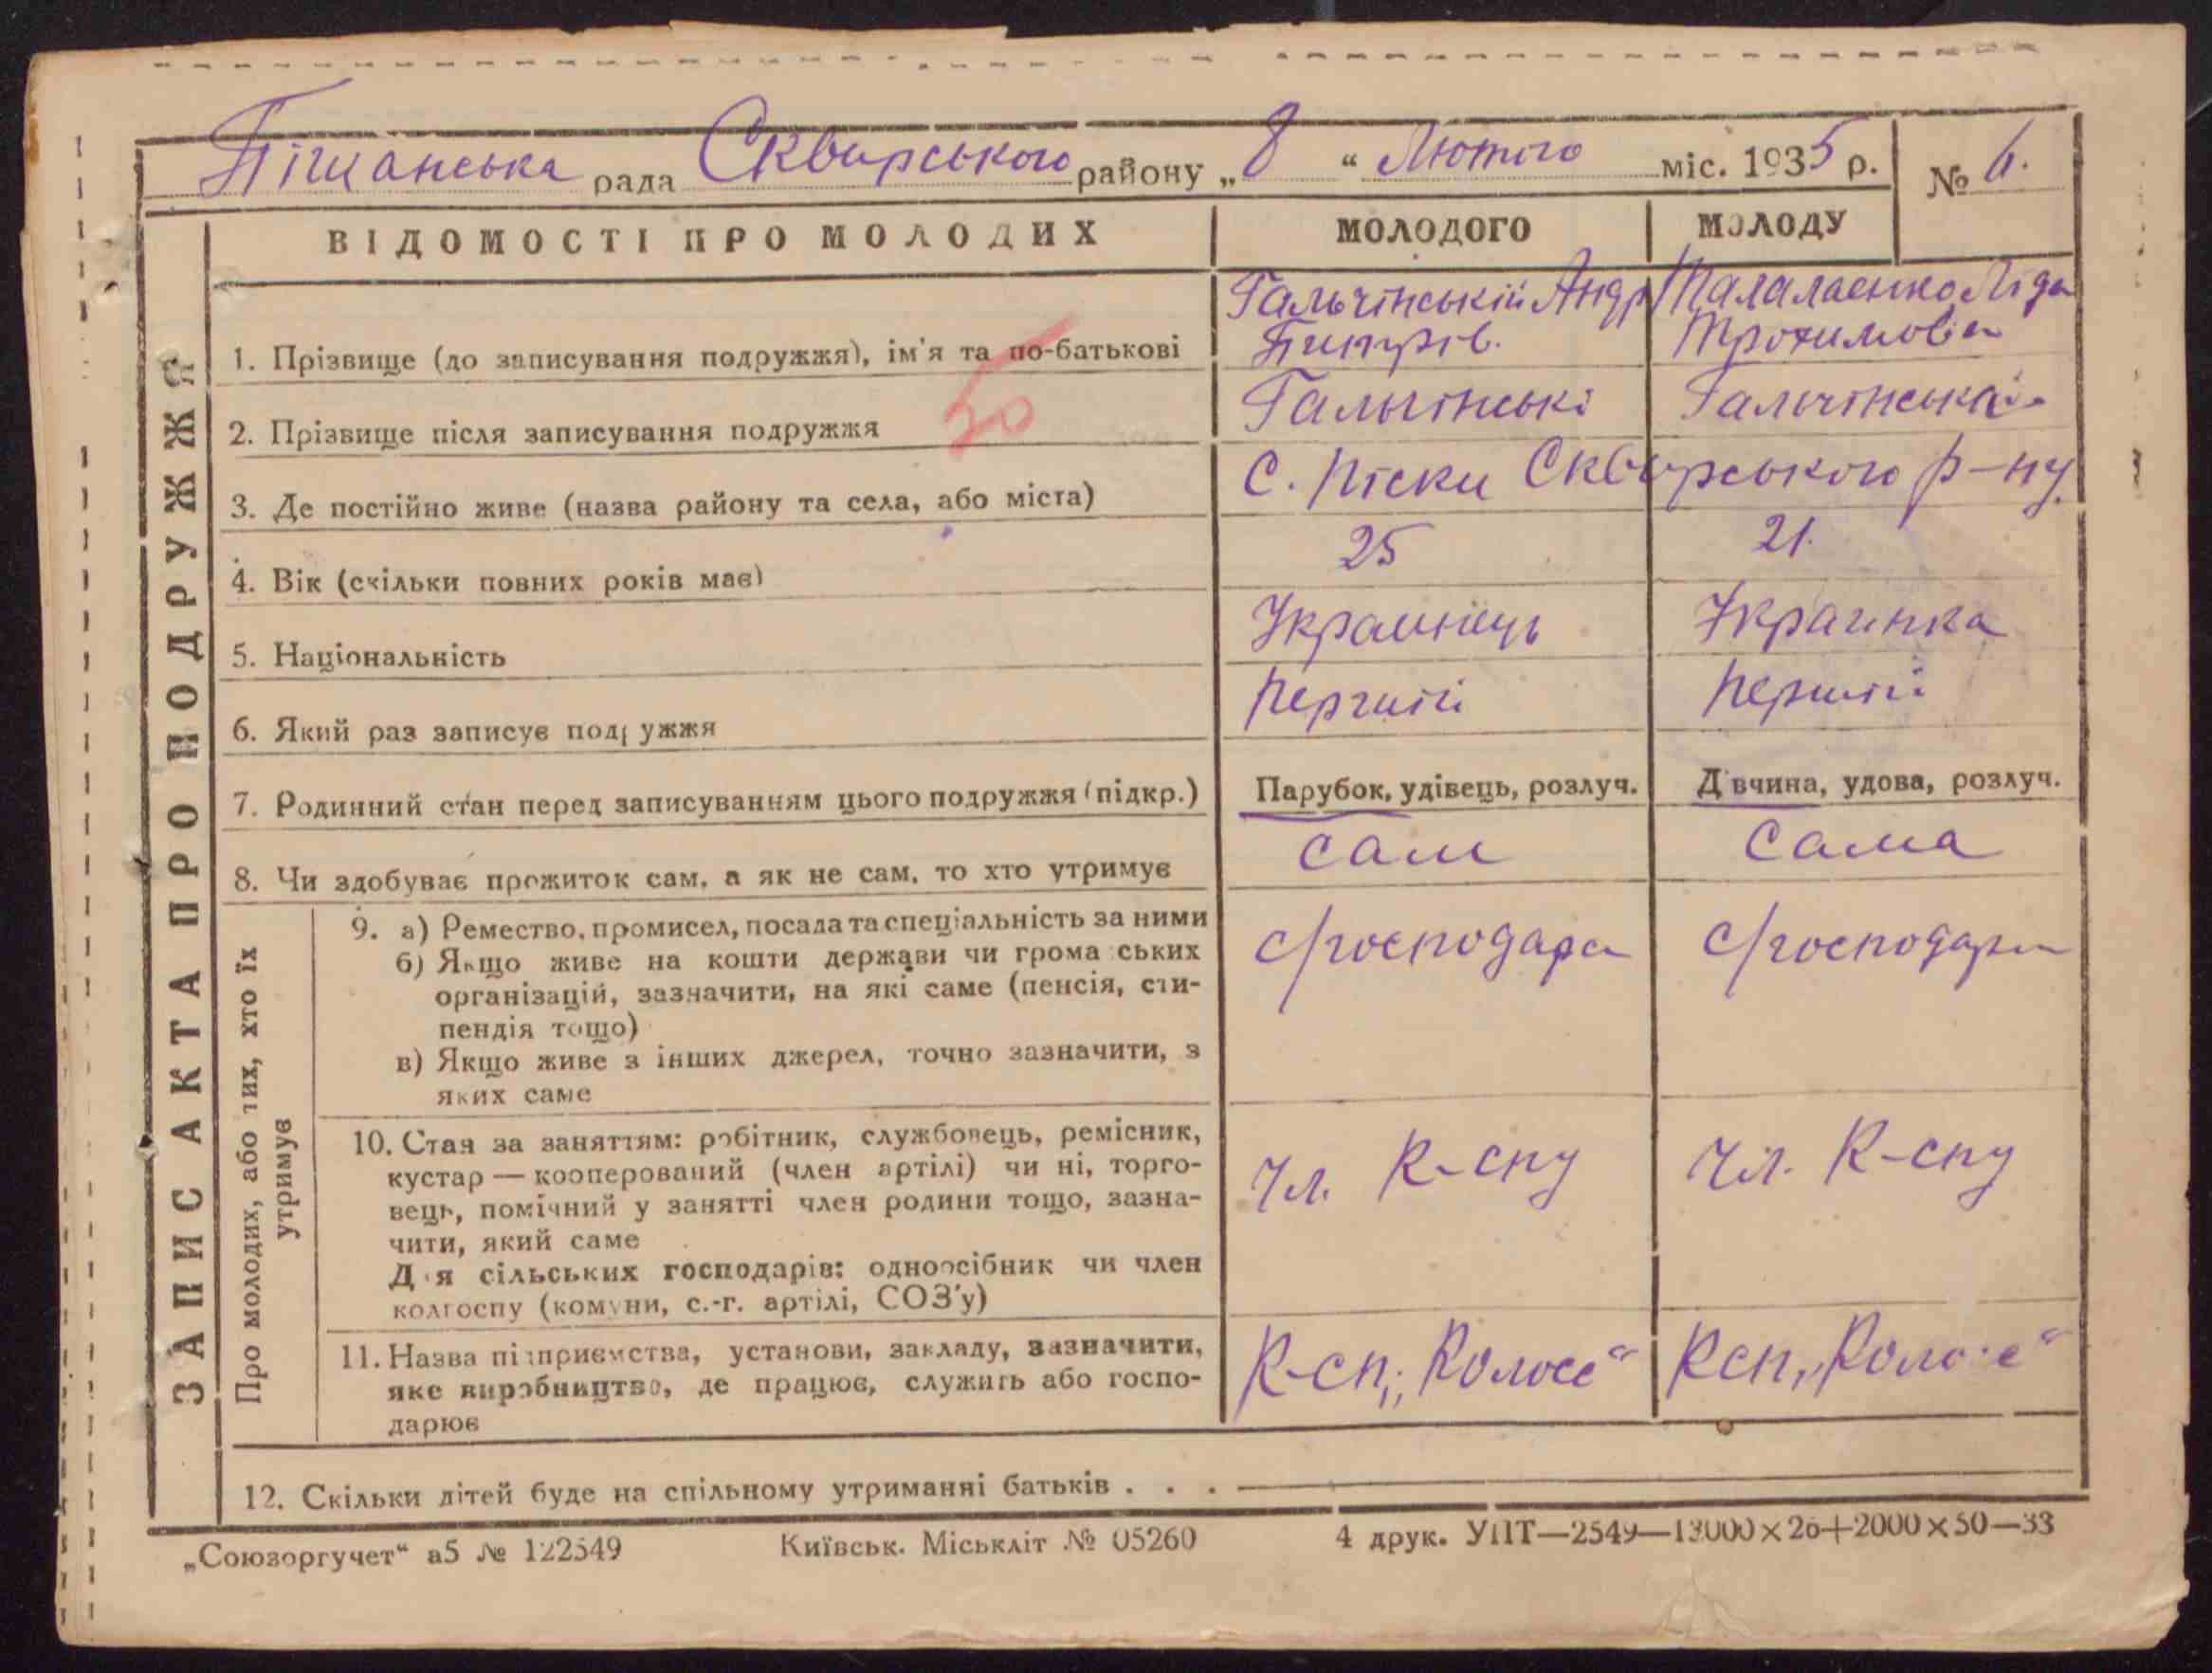 Піщанська рада Сквирського району „8“ Лютого міс. 1935 р. № 6.
ВІДОМОСТІ ПРО МОЛОДИХ МОЛОДОГО МОЛОДУ
Гальчінській Андр Палалаенко Ліда
1. Прізвище (до записування подружжя), ім'я та по-батькові Питрів. Трохимовна
50
2. Прізвище після записування подружжя Гальчінські Гальчінська
3. Де постійно живе (назва району та села, або міста) С. Піски Сквирського р-ну
4. Вік (скільки повних років має) 25 21.
5. Національність Украинець Украинка
6. Який раз записує подружжя Перший Перший
7. Родинний стан перед записуванням цього подружжя (підкр.) Парубок, удівець, розлуч. Дівчина, удова, розлуч.
8. Чи здобуває прожиток сам, а як не сам, то хто утримує сам сама
ЗАПИС АКТА ПРО ПОДРУЖЖЯ
Про молодих, або тих, хто їх
утримує
9. а) Ремество, промисел, посада та спеціальність за ними с/господара с/господарка
б) Якщо живе на кошти держави чи громадських
організацій, зазначити, на які саме (пенсія, сти-
пендія тощо)
в) Якщо живе з інших джерел, точно зазначити, з
яких саме
10. Стан за заняттям: робітник, службовець, ремісник,
кустар — кооперований (член артілі) чи ні, торго- Чл. К-спу Чл. К-спу
вець, помічний у занятті член родини тощо, зазна-
чити, який саме
Для сільських господарів: одноосібник чи член
колгоспу (комуни, с.-г. артілі, СОЗ'у)
11. Назва підприємства, установи, закладу, зазначити,
яке виробництво, де працює, служить або госпо- К-сп, „Колосс“ Ксп, „Колосс“
дарює
12. Скільки дітей буде на спільному утриманні батьків . . . —
„Союзоргучет“ а5 № 122549 Київськ. Міськліт № 05260 4 друк. УПТ—2549—13000×26+2000×50—33